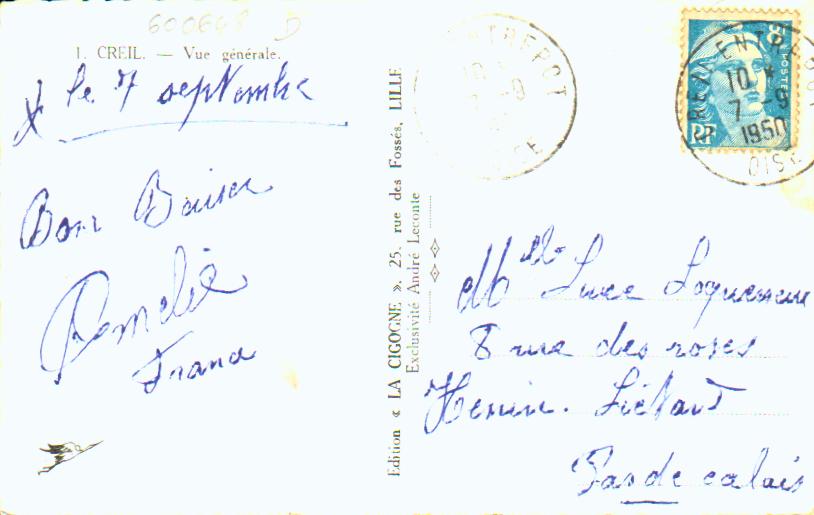 600648 D
1. CREIL. — Vue générale.
le 7 septembre
Bon Baiser
France
Edition « LA CIGOGNE ». 25. rue des Fossés, LILLE
Exclusivité André Leconte
ENTREPOT
10
7 -9
OISE
CREIL ENTREPOT
10 *
7 -9
1950
OISE
POSTES
RF
Melle Luce Loquemeur
8 rue des roses
Henin. Liétard
Pas de calais